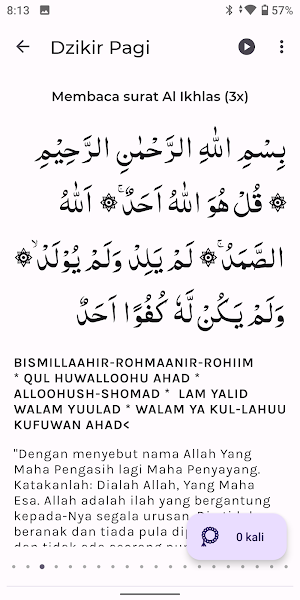 8:13
57%
Dzikir Pagi
Membaca surat Al Ikhlas (3x)
بِسْمِ اللهِ الرَّحْمٰنِ الرَّحِيْمِ
۞ قُلْ هُوَ اللهُ اَحَدٌۚ ۞ اَللهُ
الصَّمَدُۚ ۞ لَمْ يَلِدْ وَلَمْ يُوْلَدْۙ ۞
وَلَمْ يَكُنْ لَّهٗ كُفُوًا اَحَدٌ
BISMILLAAHIR-ROHMAANIR-ROHIIM
* QUL HUWALLOOHU AHAD *
ALLOOHUSH-SHOMAD * LAM YALID
WALAM YUULAD * WALAM YA KUL-LAHUU
KUFUWAN AHAD<
"Dengan menyebut nama Allah Yang
Maha Pengasih lagi Maha Penyayang.
Katakanlah: Dialah Allah, Yang Maha
Esa. Allah adalah ilah yang bergantung
kepada-Nya segala urusan.
beranak dan tiada pula
0 kali